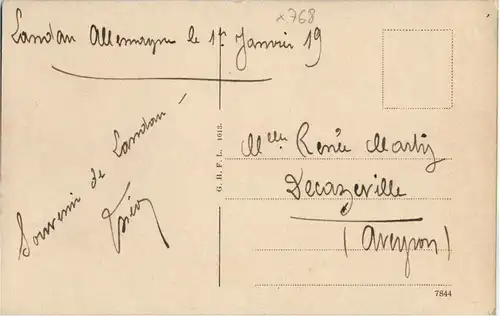 x768
Landau Allemagne le 1er Janvier 19
Souvenir de Landau -
G. H. F. L. 1613.
Mlle Renée Martin
Decazeville
(Aveyron)
7844